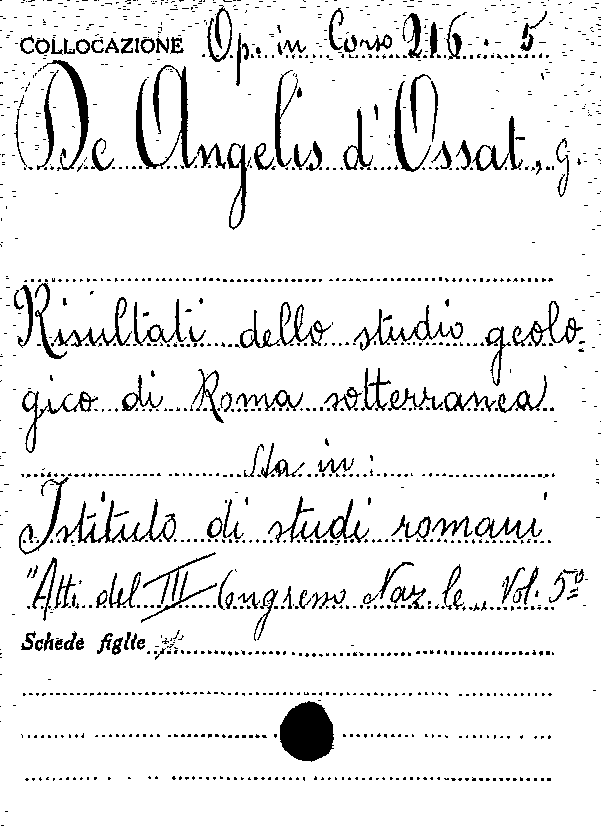 COLLOCAZIONE Op. in Corso 216. 5
De Angelis d'Ossat, g.
Risultati dello studio geolo-
gico di Roma sotterranea
Sta in:
Istituto di studi romani
"Atti del III Congresso Naz.le" Vol. 5º
Schede figlie